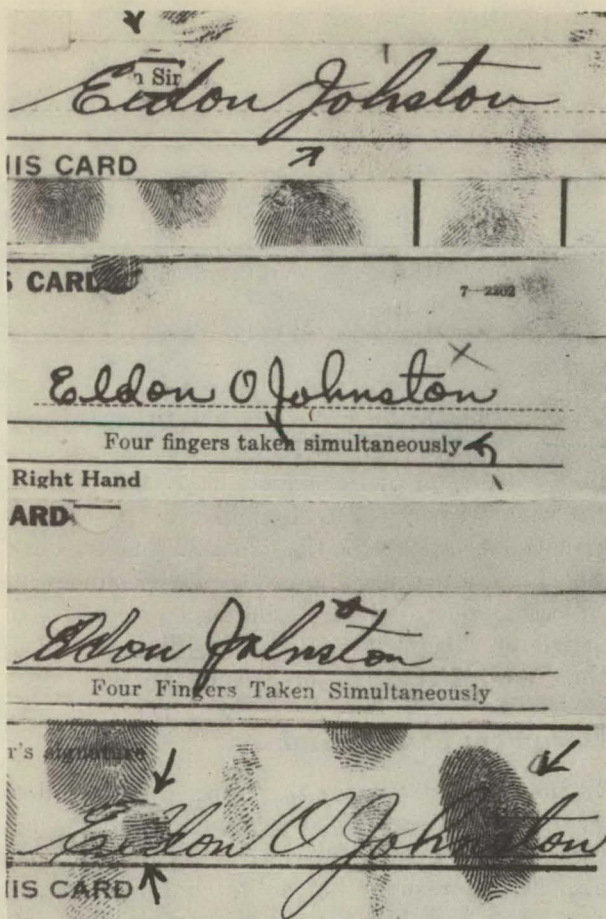 n Sir
Eldon Johston
HIS CARD
S CARD
7—2202
Eldon O Johnston
Four fingers taken simultaneously
Right Hand
ARD
Eldon Johnston
Four Fingers Taken Simultaneously
r's signature
Eldon O Johnston
HIS CARD